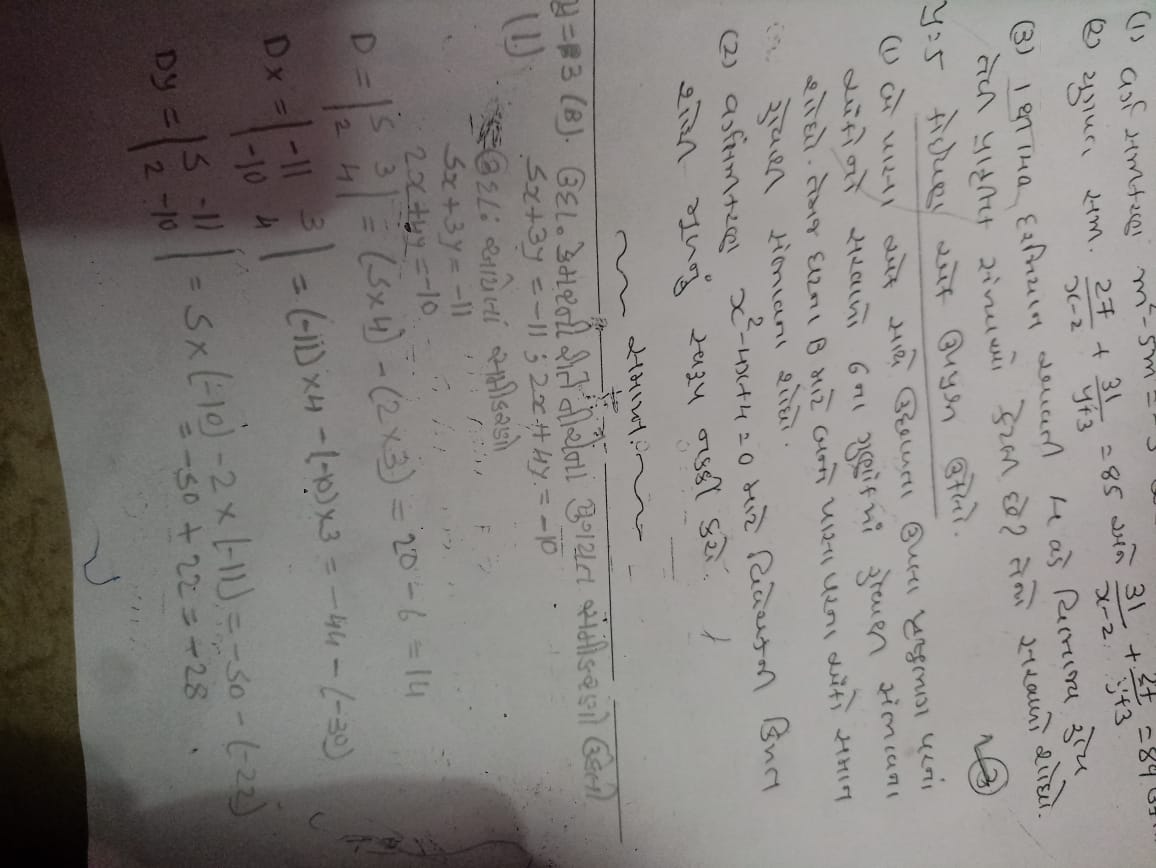 (1) વર્ગ સમીકરણ m²-5m = -3
(2) યુગપત સમ. 27/x-2 + 31/y+3 = 85 અને 31/x-2 + 27/y+3 = 89
(3) 1 થી 140 દરમિયાન આવતી 4 વડે વિભાજ્ય હોય
તેવી પ્રાકૃતિક સંખ્યાઓ કેટલી છે? તેનો સરવાળો શોધો.
પ્ર=5 કોઈપણ એક ઉકેલો.
(1) બે પાસા એક સાથે ઉછાળતા ઉપલા પૃષ્ઠભાગ પરનાં
અંકોનો સરવાળો 6ના ગુણાંકમાં હોવાની સંભાવના
શોધો. તેમજ ઘટના B માટે બન્ને પાસા પરના અંકો સમાન
હોવાની સંભાવના શોધો.
(2) વર્ગસમીકરણ x²-4x+4=0 માટે વિવેચકની કિંમત
શોધી મૂળનું સ્વરૂપ નક્કી કરો.
સમાપ્ત
પ્ર=3 (B). ઉદા. ક્રેમરની રીતે નીચેનાં યુગપત સમીકરણો ઉકેલો
(1). 5x+3y = -11 ; 2x+4y = -10
ઉદા: આપેલાં સમીકરણો
5x+3y = -11
2x+4y = -10
D = |5 3| = (5x4) - (2x3) = 20-6 = 14
|2 4|
Dx = |-11 3| = (-11)x4 - (-10)x3 = -44 - (-30)
|-10 4|
Dy = |5 -11| = 5x(-10) - 2x(-11) = -50 - (-22)
|2 -10| = -50 + 22 = -28